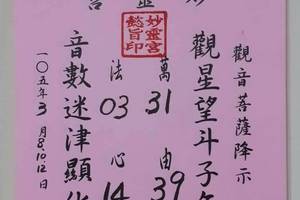 觀音菩薩降示
觀星望斗子
萬 31 由 39
妙靈宮
懿旨印
法 03 心 14
音數迷津顯
一〇五年3月8.10.12日